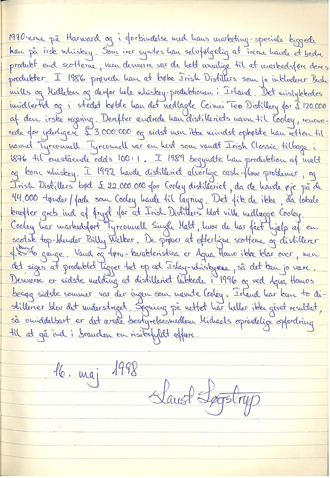 1970-erne på Harward og i forbindelse med hans marketing-speciale byggede
han på irsk whiskey. Som irer syntes han selvfølgelig at irerne havde et bedre
produkt end scotterne, men desværre var de helt umulige til at markedsføre deres
produkter. I 1986 prøvede han at købe Irish Distillers som jo inkluderer Bush
mills og Midleton og derfor hele whiskey-produktionen i Irland. Det mislykkedes
imidlertid og i stedet købte han det nedlagte Ceimici Teo Distillery for £ 120.000
af den irske regering. Derefter ændrede han distilleriets navn til Cooley, renove-
rede for yderligere £ 3.000.000 og sidst men ikke mindst opkøbte han retten til
navnet Tyrconnell. Tyrconnell var en hest som vandt Irish Classic tilbage i
1876 til enestående odds 100:1. I 1989 begyndte han produktion af malt
og korn whiskey. I 1992 havde distilleriet alvorlige cash-flow problemer, og
Irish Distillers bød £ 22.000.000 for Cooley distilleriet, da de havde øje på de
44.000 tønder/fade som Cooley havde til lagring. Det fik de ikke, da lokale
kræfter greb ind af frygt for at Irish Distillers blot ville nedlægge Cooley.
Cooley har markedsført Tyrconnell Single Malt, hvor de har fået hjælp af en
scotsk top-blender Billy Walker. De prøver at efterligne scotterne og distillerer
kun to gange. Vand og tørv-karakteristica er Aqua Homo ikke klar over, men
det siges at produktet ligger tæt op ad Islay-whiskyerne, så det kan jo være.
Desværre er sidste melding at distilleriet lukkede i 1996 og ved Aqua Homos
besøg sidste sommer var der ingen som nævnte Cooley. Irland har kun to di-
stillerier blev det understreget. Søgning på nettet har heller ikke givet resultat,
så omdelbart er det ærede bestyrelsesmedlem Michaels oprindelige opfordring
til at gå ind i branchen en risikofyldt affære.
16. maj 1998
Laust Løgstrup